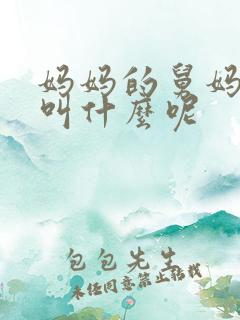 妈妈的舅妈
叫什麼呢
包包先生
未经同意禁止转载